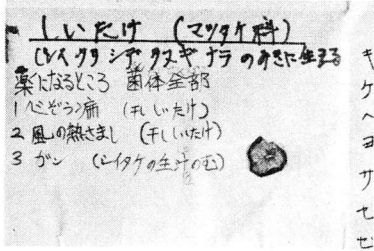 しいたけ (マツタケ科)
(シイ クリ シデ クヌギ ナラ のみきに生える
薬になるところ 菌体全部
1 心ぞう病 (干ししいたけ)
2 風の熱さまし (干ししいたけ)
3 ガン (シイタケの生汁のむ)
キ
ケ
ヘ
ヨ
サ
セ
ヒ